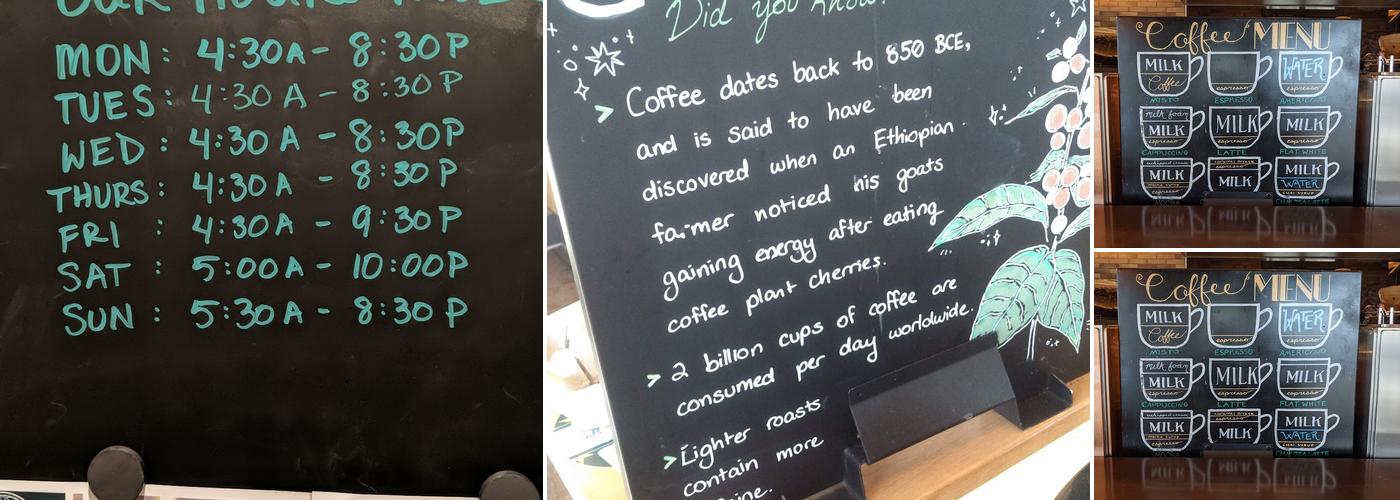 MON: 4:30A - 8:30P
TUES: 4:30A - 8:30P
WED: 4:30A - 8:30P
THURS: 4:30A - 8:30P
FRI : 4:30A - 9:30P
SAT : 5:00A - 10:00P
SUN : 5:30A - 8:30P
Did you know?
> Coffee dates back to 850 BCE,
and is said to have been
discovered when an Ethiopian
farmer noticed his goats
gaining energy after eating
coffee plant cherries.
> 2 billion cups of coffee are
consumed per day worldwide.
> Lighter roasts
contain more
Coffee MENU
MILK
Coffee espresso WATER espresso
MISTO ESPRESSO AMERICANO
milk foam
MILK MILK MILK
espresso espresso espresso
CAPPUCCINO LATTE FLAT WHITE
MILK MILK MILK
WATER
espresso CHAI SYRUP
CHAI TEA LATTE
Coffee MENU
MILK
Coffee espresso WATER espresso
MISTO ESPRESSO AMERICANO
milk foam
MILK MILK MILK
espresso espresso espresso
CAPPUCCINO LATTE FLAT WHITE
MILK MILK MILK
WATER
espresso CHAI SYRUP
CHAI TEA LATTE